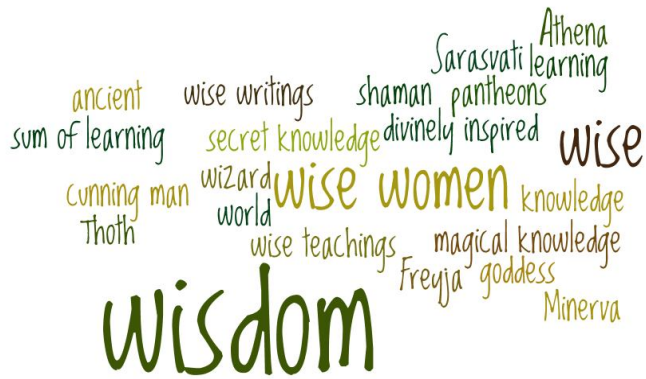 Athena
Sarasvati learning
ancient wise writings shaman pantheons
sum of learning secret knowledge divinely inspired wise
cunning man wizard wise women knowledge
Thoth world
wise teachings magical knowledge
Freyja goddess
Minerva
wisdom